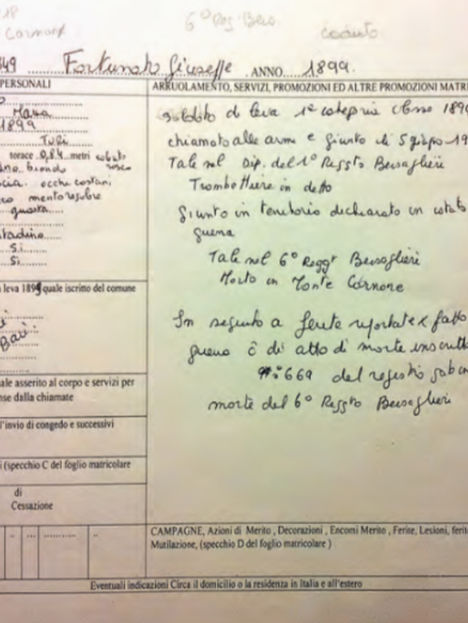 18
6° Reg Bers.
Cornone
caduto
349 Fortunato Giuseppe ANNO 1899
PERSONALI
ARRUOLAMENTO, SERVIZI, PROMOZIONI ED ALTRE PROMOZIONI MATRI
Maria
1899
soldato di leva 1ª categoria classe 1899
chiamato alle armi e giunto li 5 giugno 19
torace 0,84 metri
Tale nel Dip. del 1° Reggto Bersaglieri
biondo
occhi castani
Trombettiere in detto
mento regolare
giusta
giunto in territorio dichiarato in stato
tadino
guerra
Si
Si
Tale nel 6° Reggt Bersaglieri
Morto in Monte Cornone
leva 1899 quale iscritto del comune
In seguito a ferite riportate x fatto
Bari
guerra c di atto di morte inscritto
n° 669 del registro
ale asserito al corpo e servizi per
nse dalla chiamate
morte del 6° Reggto Bersaglieri
l'invio di congedo e successivi
i (specchio C del foglio matricolare
di
Cessazione
CAMPAGNE, Azioni di Merito , Decorazioni , Encomi Merito , Ferite, Lesioni, ferit
Mutilazione, (specchio D del foglio matricolare )
Eventuali indicazioni Circa il domicilio o la residenza in Italia e all'estero